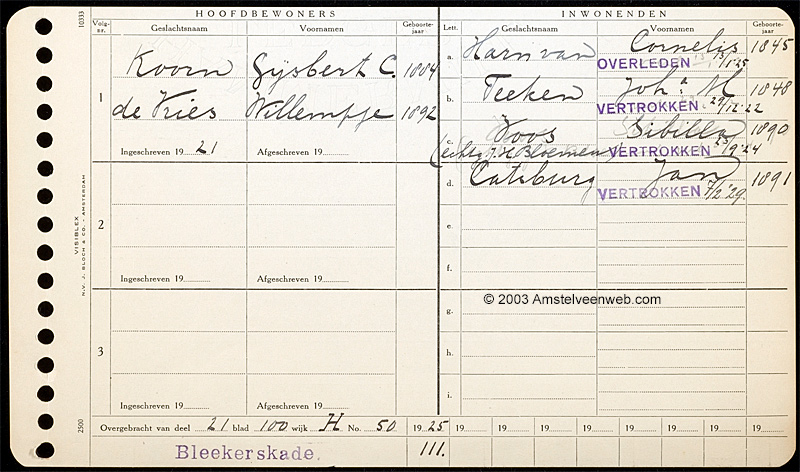 HOOFDBEWONERS
Volg-nr. Geslachtsnaam Voornamen Geboorte-jaar
1 Koorn Gijsbert C. 1884
de Vries Willempje 1892
Ingeschreven 19 21 Afgeschreven 19
2
Ingeschreven 19 Afgeschreven 19
3
Ingeschreven 19 Afgeschreven 19
INWONENDEN
Lett. Geslachtsnaam Voornamen Geboorte-jaar
a. Harn van Cornelis 1845
OVERLEDEN 13/1 '25
b. Teeken Joh.a M 1848
VERTROKKEN 29/12-22
c. Voos Sibilla 1890
(echtg. J. H. Bloemen) VERTROKKEN 25/9 '24
d. Catsburg Jan 1891
VERTROKKEN 7/2 '29.
e.
f.
g.
h.
i.
© 2003 Amstelveenweb.com
Overgebracht van deel 21 blad 100 wijk H No. 50 19 25 19 19 19 19 19 19 19 19
Bleekerskade. 111.
10333
VISIBLEX
N.V. J. BLOCH & CO. - AMSTERDAM
2500